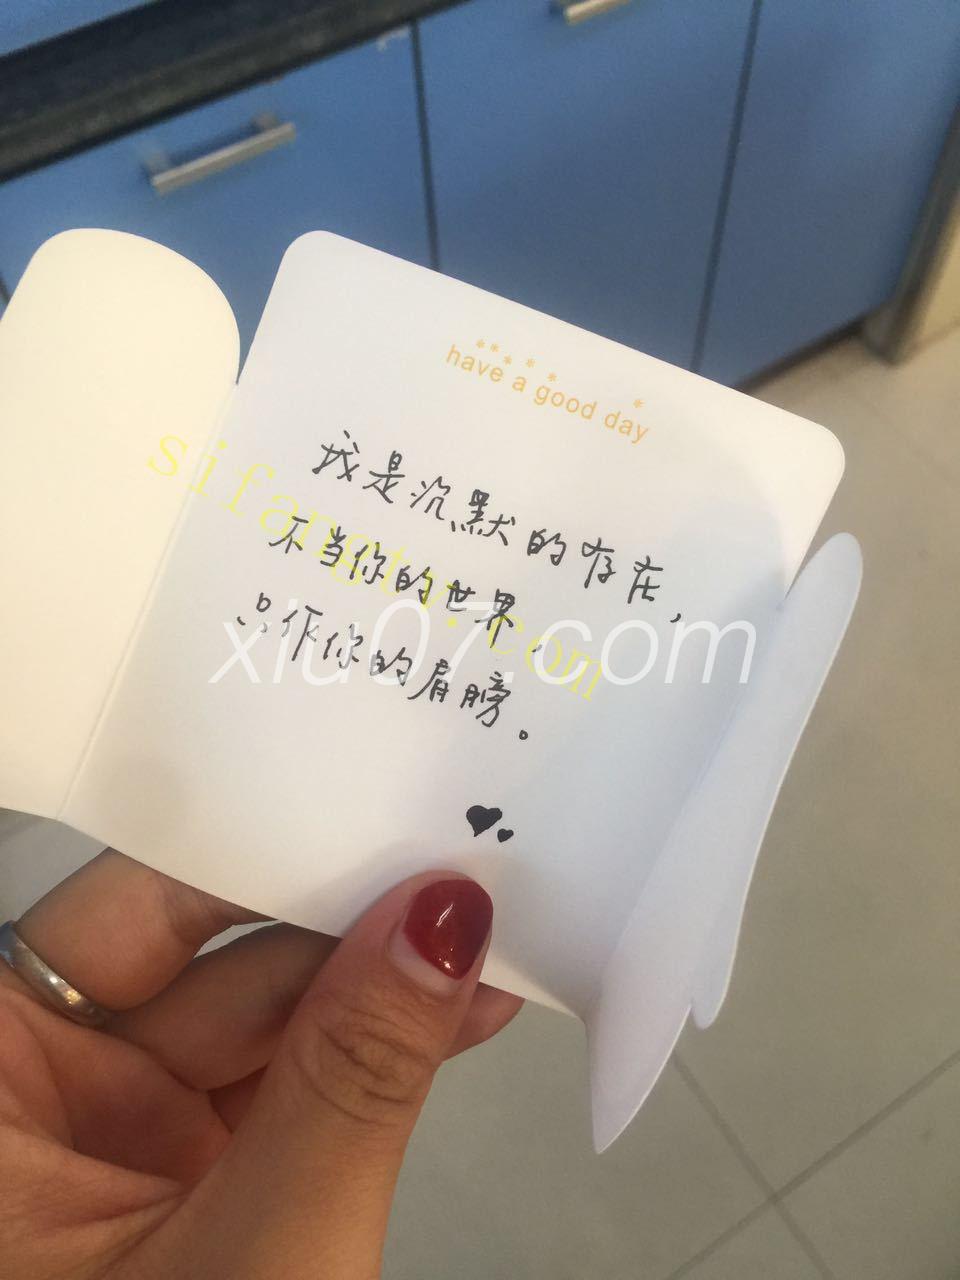 have a good day
我是沉默的存在，
不当你的世界，
只作你的肩膀。
sifangtv.com
xiu07.com